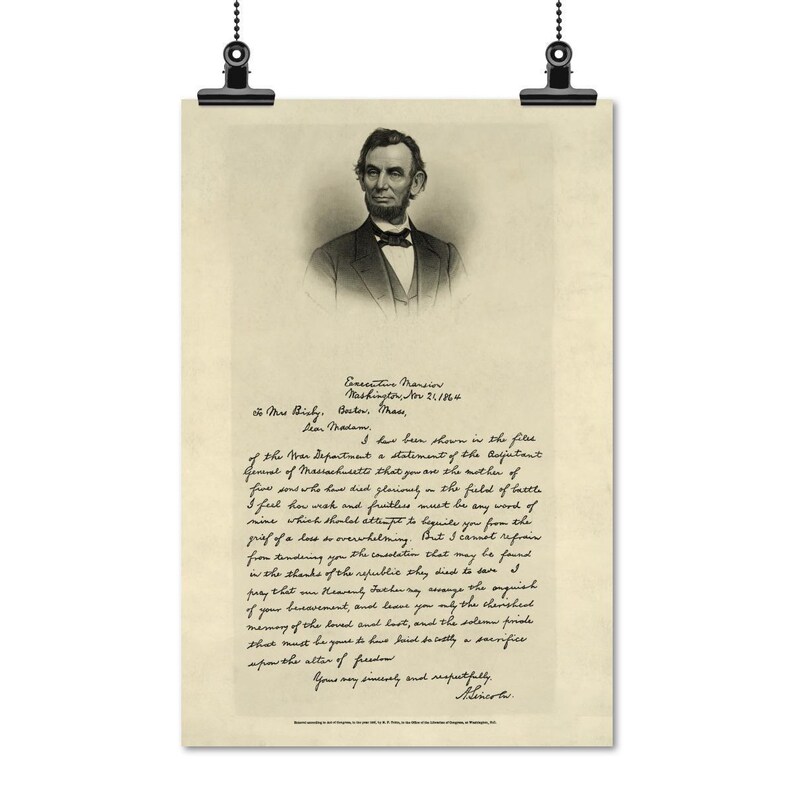 Executive Mansion
Washington, Nov 21, 1864
To Mrs Bixby, Boston, Mass,
Dear Madam.
I have been shown in the files
of the War Department a statement of the Adjutant
General of Massachusetts that you are the mother of
five sons who have died gloriously on the field of battle
I feel how weak and fruitless must be any word of
mine which should attempt to beguile you from the
grief of a loss so overwhelming. But I cannot refrain
from tendering you the consolation that may be found
in the thanks of the republic they died to save I
pray that our Heavenly Father may assuage the anguish
of your bereavement, and leave you only the cherished
memory of the loved and lost, and the solemn pride
that must be yours to have laid so costly a sacrifice
upon the altar of freedom
Yours very sincerely and respectfully.
A. Lincoln.
according to Act of Congress, in the year by in the Office of the Librarian of Congress, at Washington, D.C.